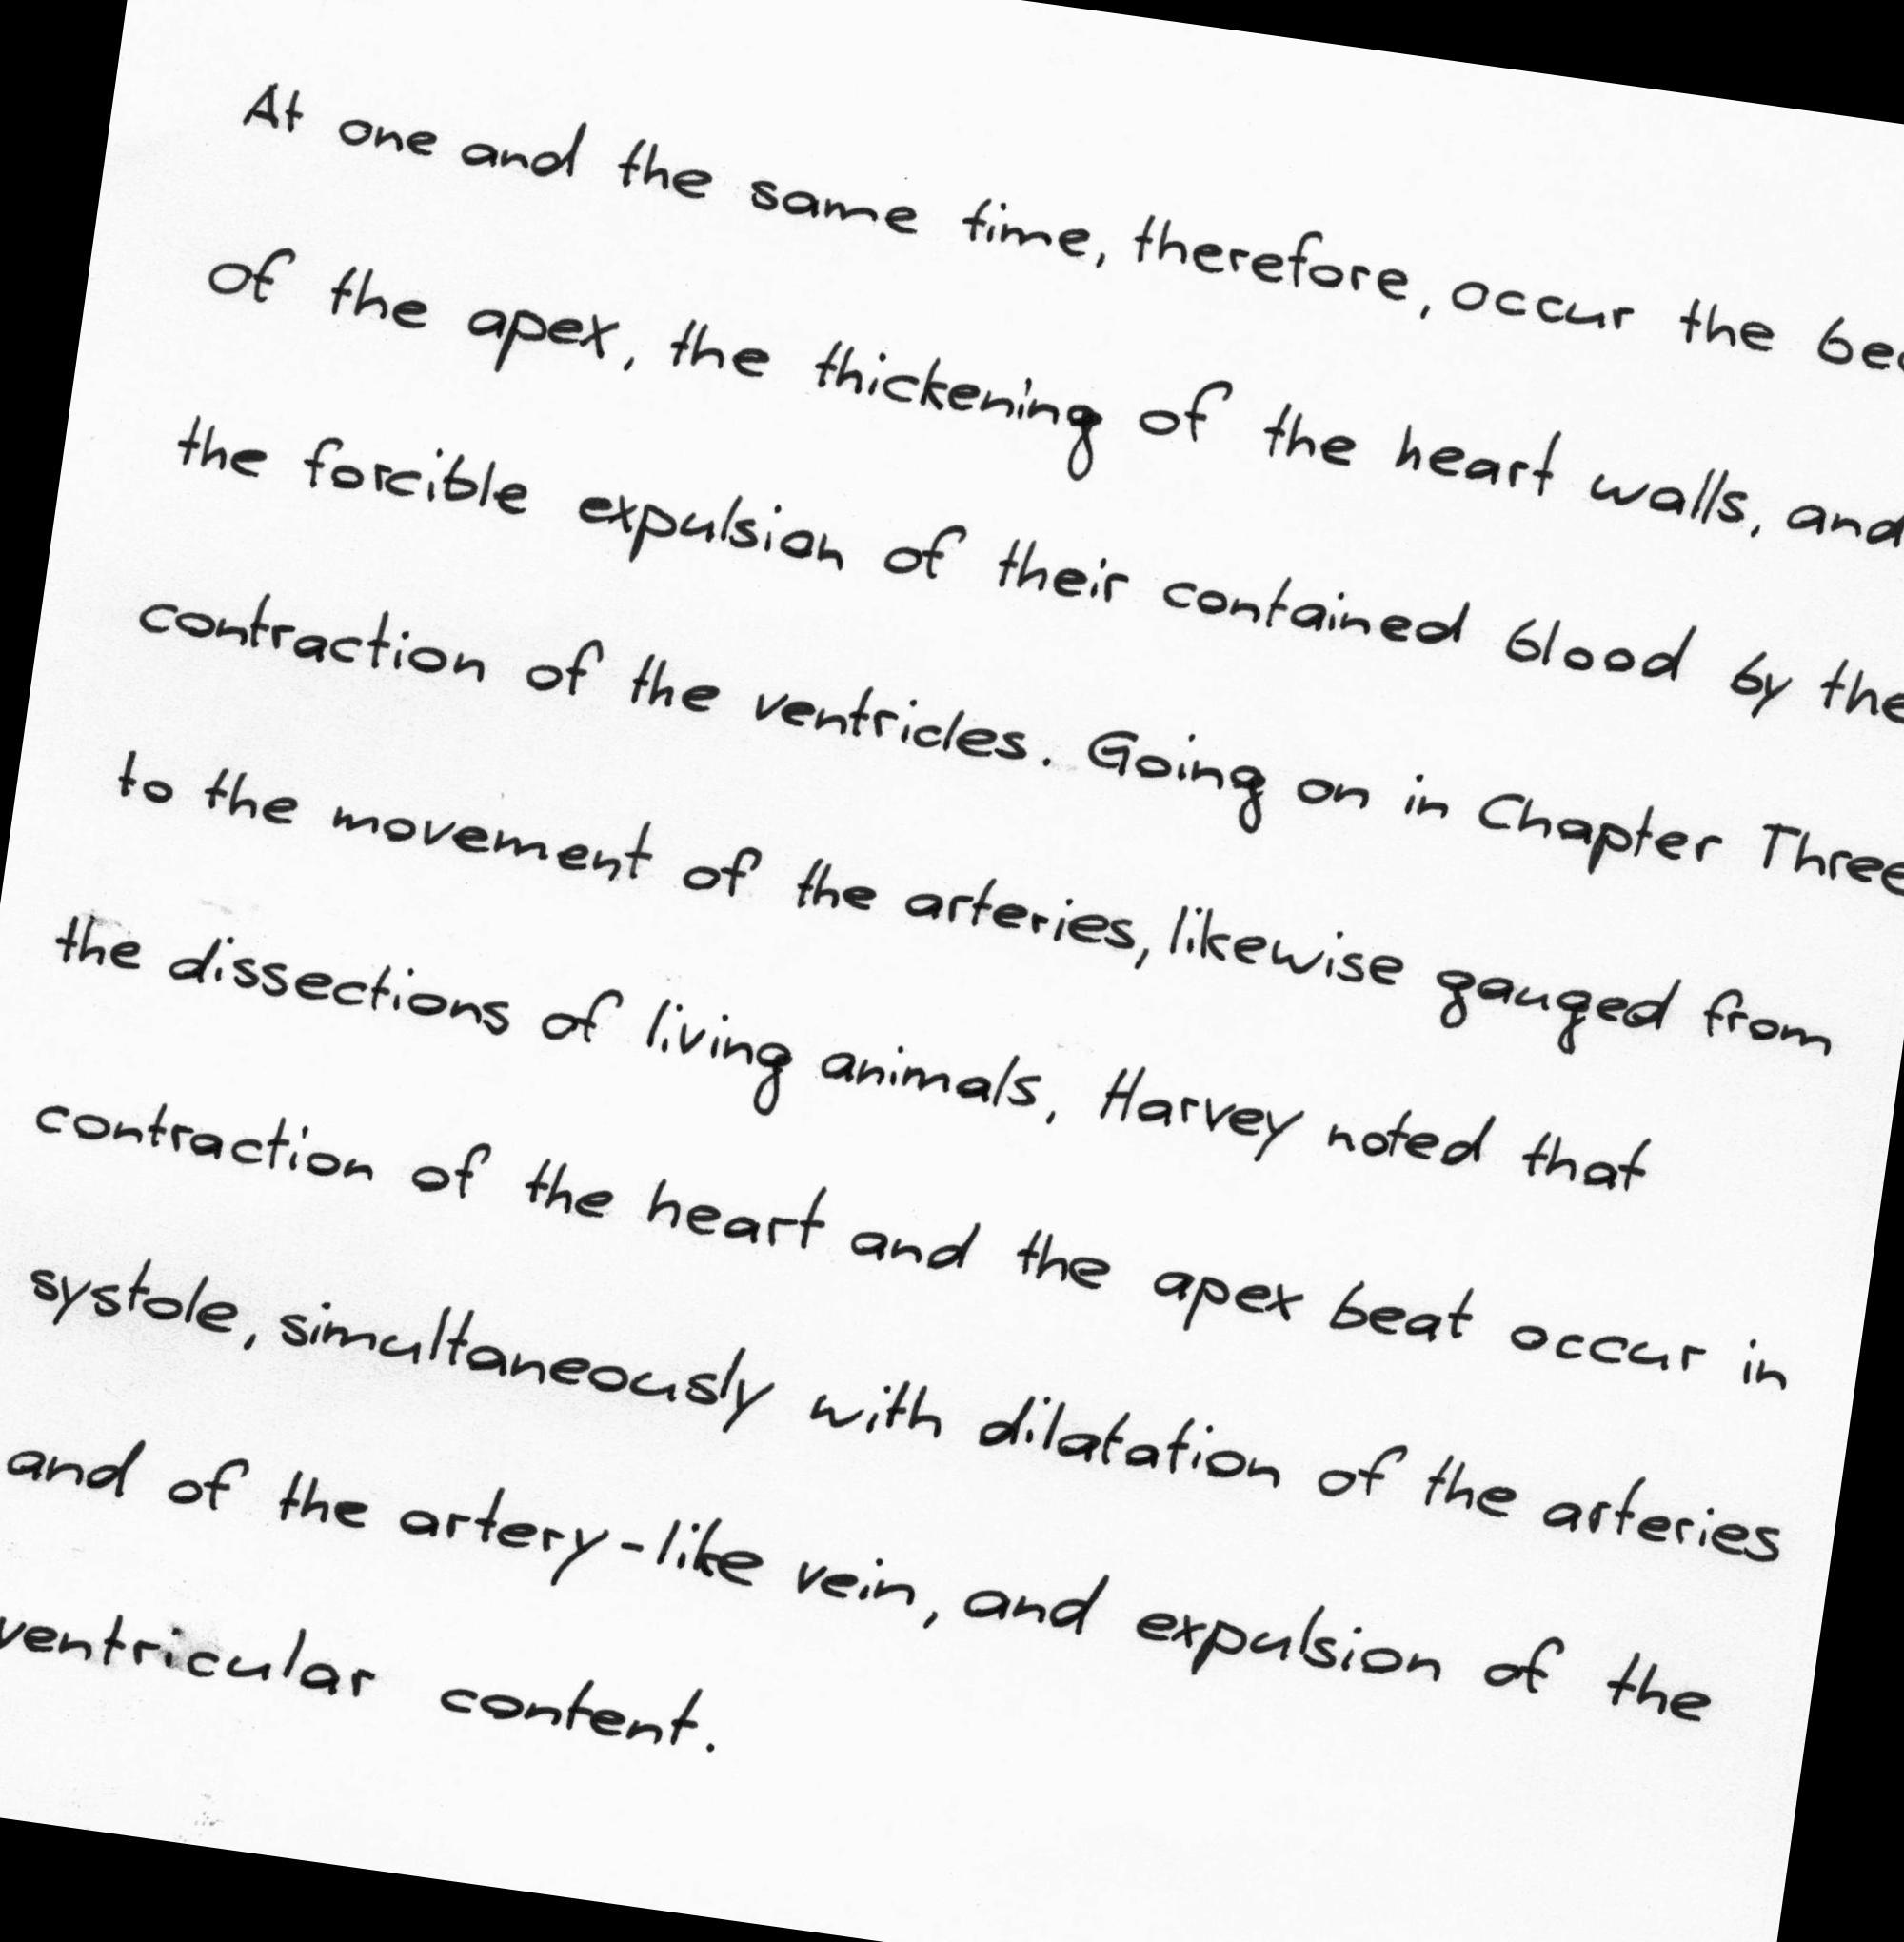 At one and the same time, therefore, occur the
of the apex, the thickening of the heart walls, and
the forcible expulsion of their contained blood by the
contraction of the ventricles. Going on in Chapter Three
to the movement of the arteries, likewise gauged from
the dissections of living animals, Harvey noted that
contraction of the heart and the apex beat occur in
systole, simultaneously with dilatation of the arteries
and of the artery-like vein, and expulsion of the
ventricular content.